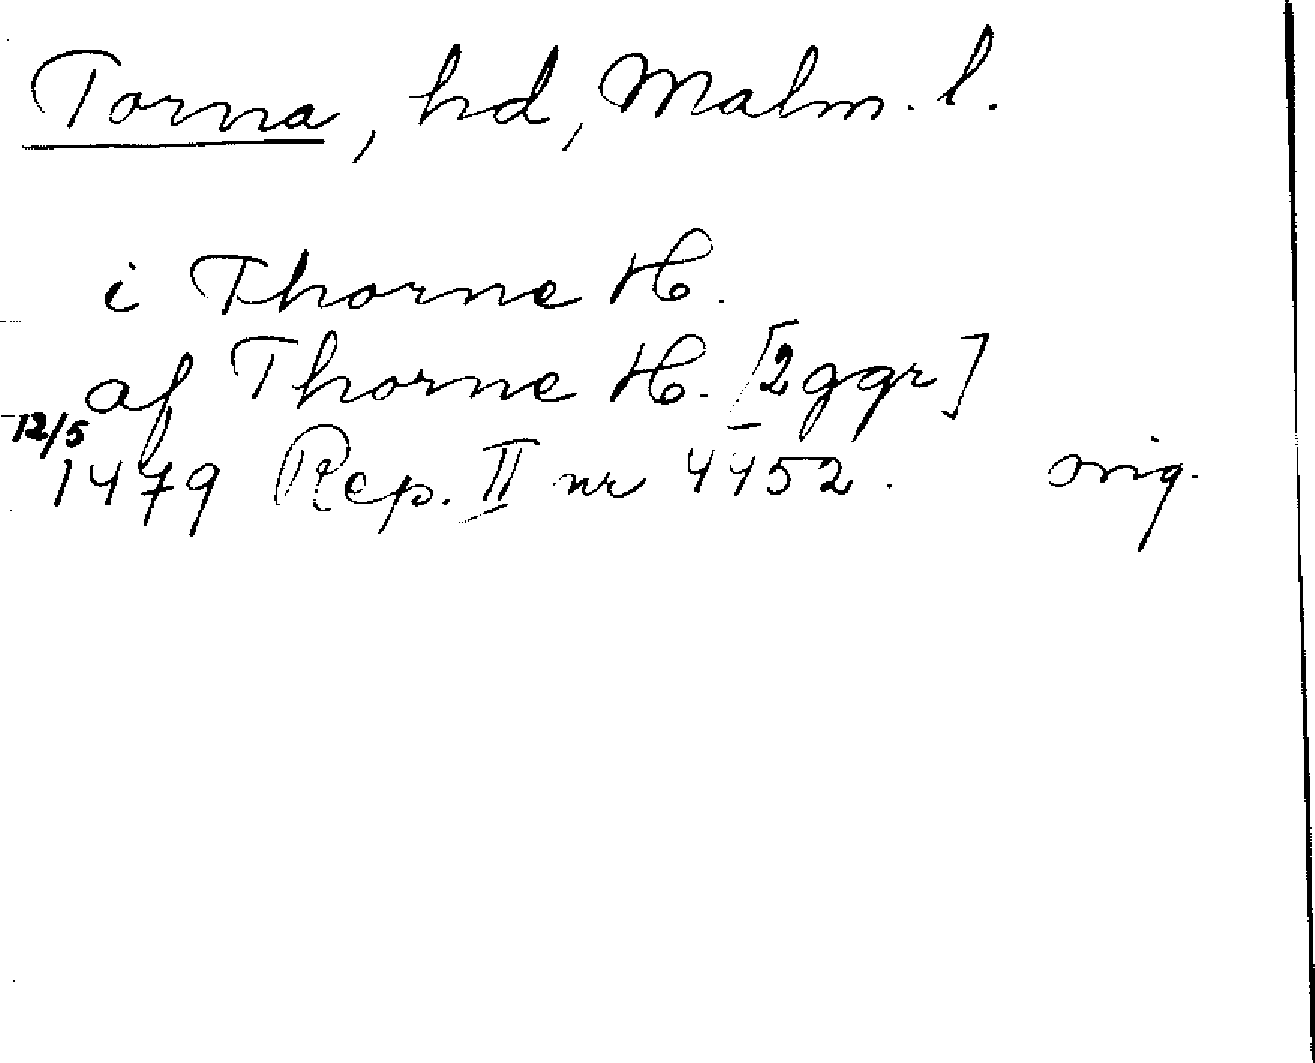 Torna, hd, Malm. l.
i Thorne H.
af Thorne H. [2ggr]
12/5
1479 Rep. II nr 4452. orig.